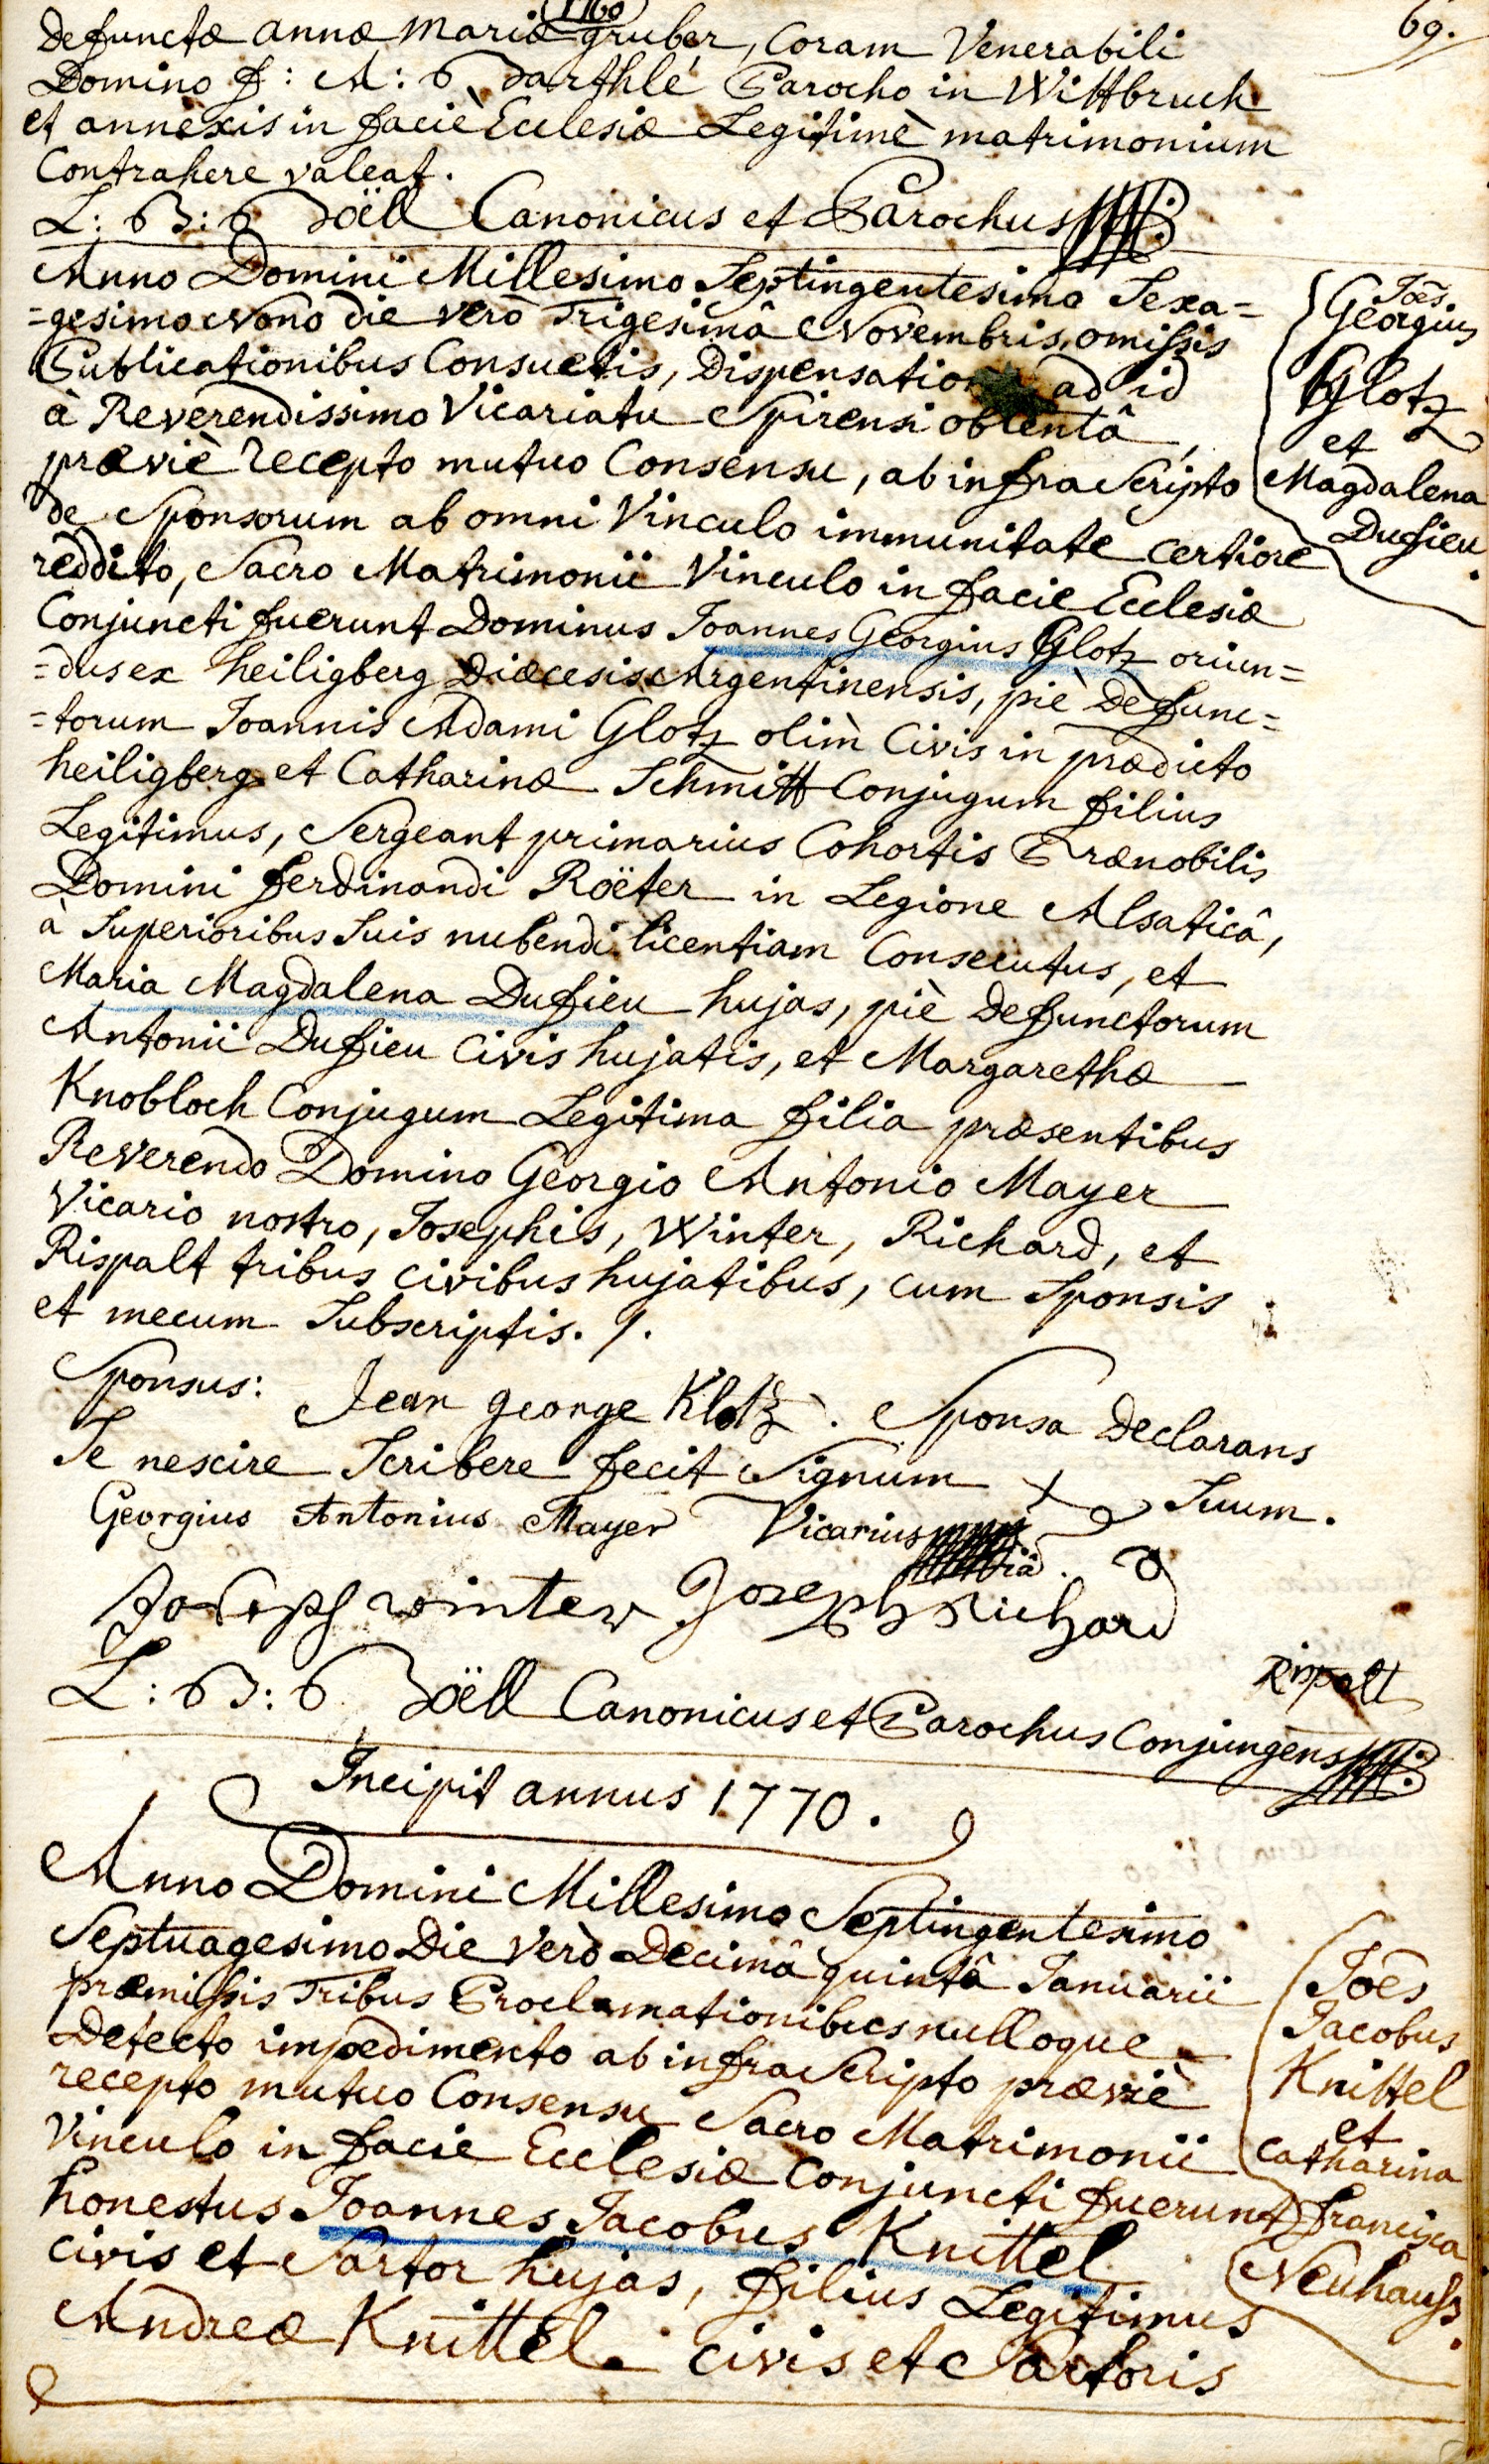 1760
69.
Defunctæ annæ Mariæ gruber, Coram Venerabili
Domino f: A: Barthlé Parocho in Wittbruch
et annèxis in faciè Ecclesiæ Legitimè matrimonium
Contrahere valeat.
L: B: Böell Canonicus et Parochus
Anno Domini Millesimo Septingentesimo Sexa=
=gesimo Nono die verò Trigesimâ Novembris, omissis
Publicationibus Consuetis, Dispensation ad id
à Reverendissimo Vicariatu Spirensi obtentâ,
præviè recepto mutuo Consensu, ab infra Scripto
de Sponsorum ab omni Vinculo immunitate certiore
reddito, Sacro Matrimonii Vinculo in facie Ecclesiæ
Conjuncti fuerunt Dominus Joannes Georgius Glotz oriun=
=dus ex heiligberg Diæcesis Argentinensis, piè Defunc=
=torum Joannis Adami Glotz olim Civis in prædicto
heiligberg et Catharinæ Schmitt Conjugum filius
Legitimus, Sergeant primarius Cohortis Prænobilis
Domini ferdinandi Roëter in Legione Alsaticâ,
à Superioribus Suis nubendi licentiam Consecutus, et
Maria Magdalena Dufieu hujas, piè Defunctorum
Antonii Dufieu Civis hujatis, et Margarethæ
Knobloch Conjugum Legitima filia præsentibus
Reverendo Domino Georgio Antonio Mayer
Vicario nostro, Josephis, Winter, Richard, et
Rispalt tribus civibus hujatibus, cum Sponsis
et mecum Subscriptis.
Joēs
Georgius
Glotz
et
Magdalena
Dufieu.
Sponsus: Jean george Klotz. Sponsa Declarans
Se nescire Scribere fecit Signum + Suum.
Georgius Antonius Mayer Vicarius
Joseph winter Joseph Richard
Rispalt
L: B: Böell Canonicus et Parochus Conjungens
Incipit annus 1770.
Anno Domini Millesimo Septingentesimo
Septuagesimo Die Verò Decimâ quintâ Januarii
præmissis Tribus Proclamationibus nulloque
Detecto impedimento ab infra Scripto præviè
recepto mutuo Consensu Sacro Matrimonii
Vinculo in facie Ecclesiæ Conjuncti fuerunt
honestus Joannes Jacobus Knittel
civis et Sartor hujas, filius Legitimus
Andreæ Knittel civis et Sartoris
Joēs
Jacobus
Knittel
et
Catharina
francisca
Neuhauss.